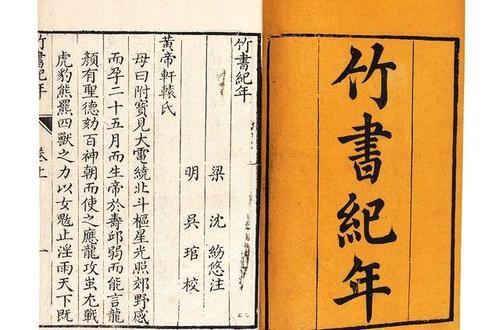 竹書紀年
竹書紀年
梁 沈約悠注
明 吳琯校
黃帝軒轅氏
母曰附寶見大電繞北斗樞星光照郊野感
而孕二十五月而生帝於壽邱弱而能言龍
顏有聖德劾百神朝而使之應龍攻蚩尤戰
虎豹熊羆四獸之力以女魃止淫雨天下既
竹書紀年 卷上 一